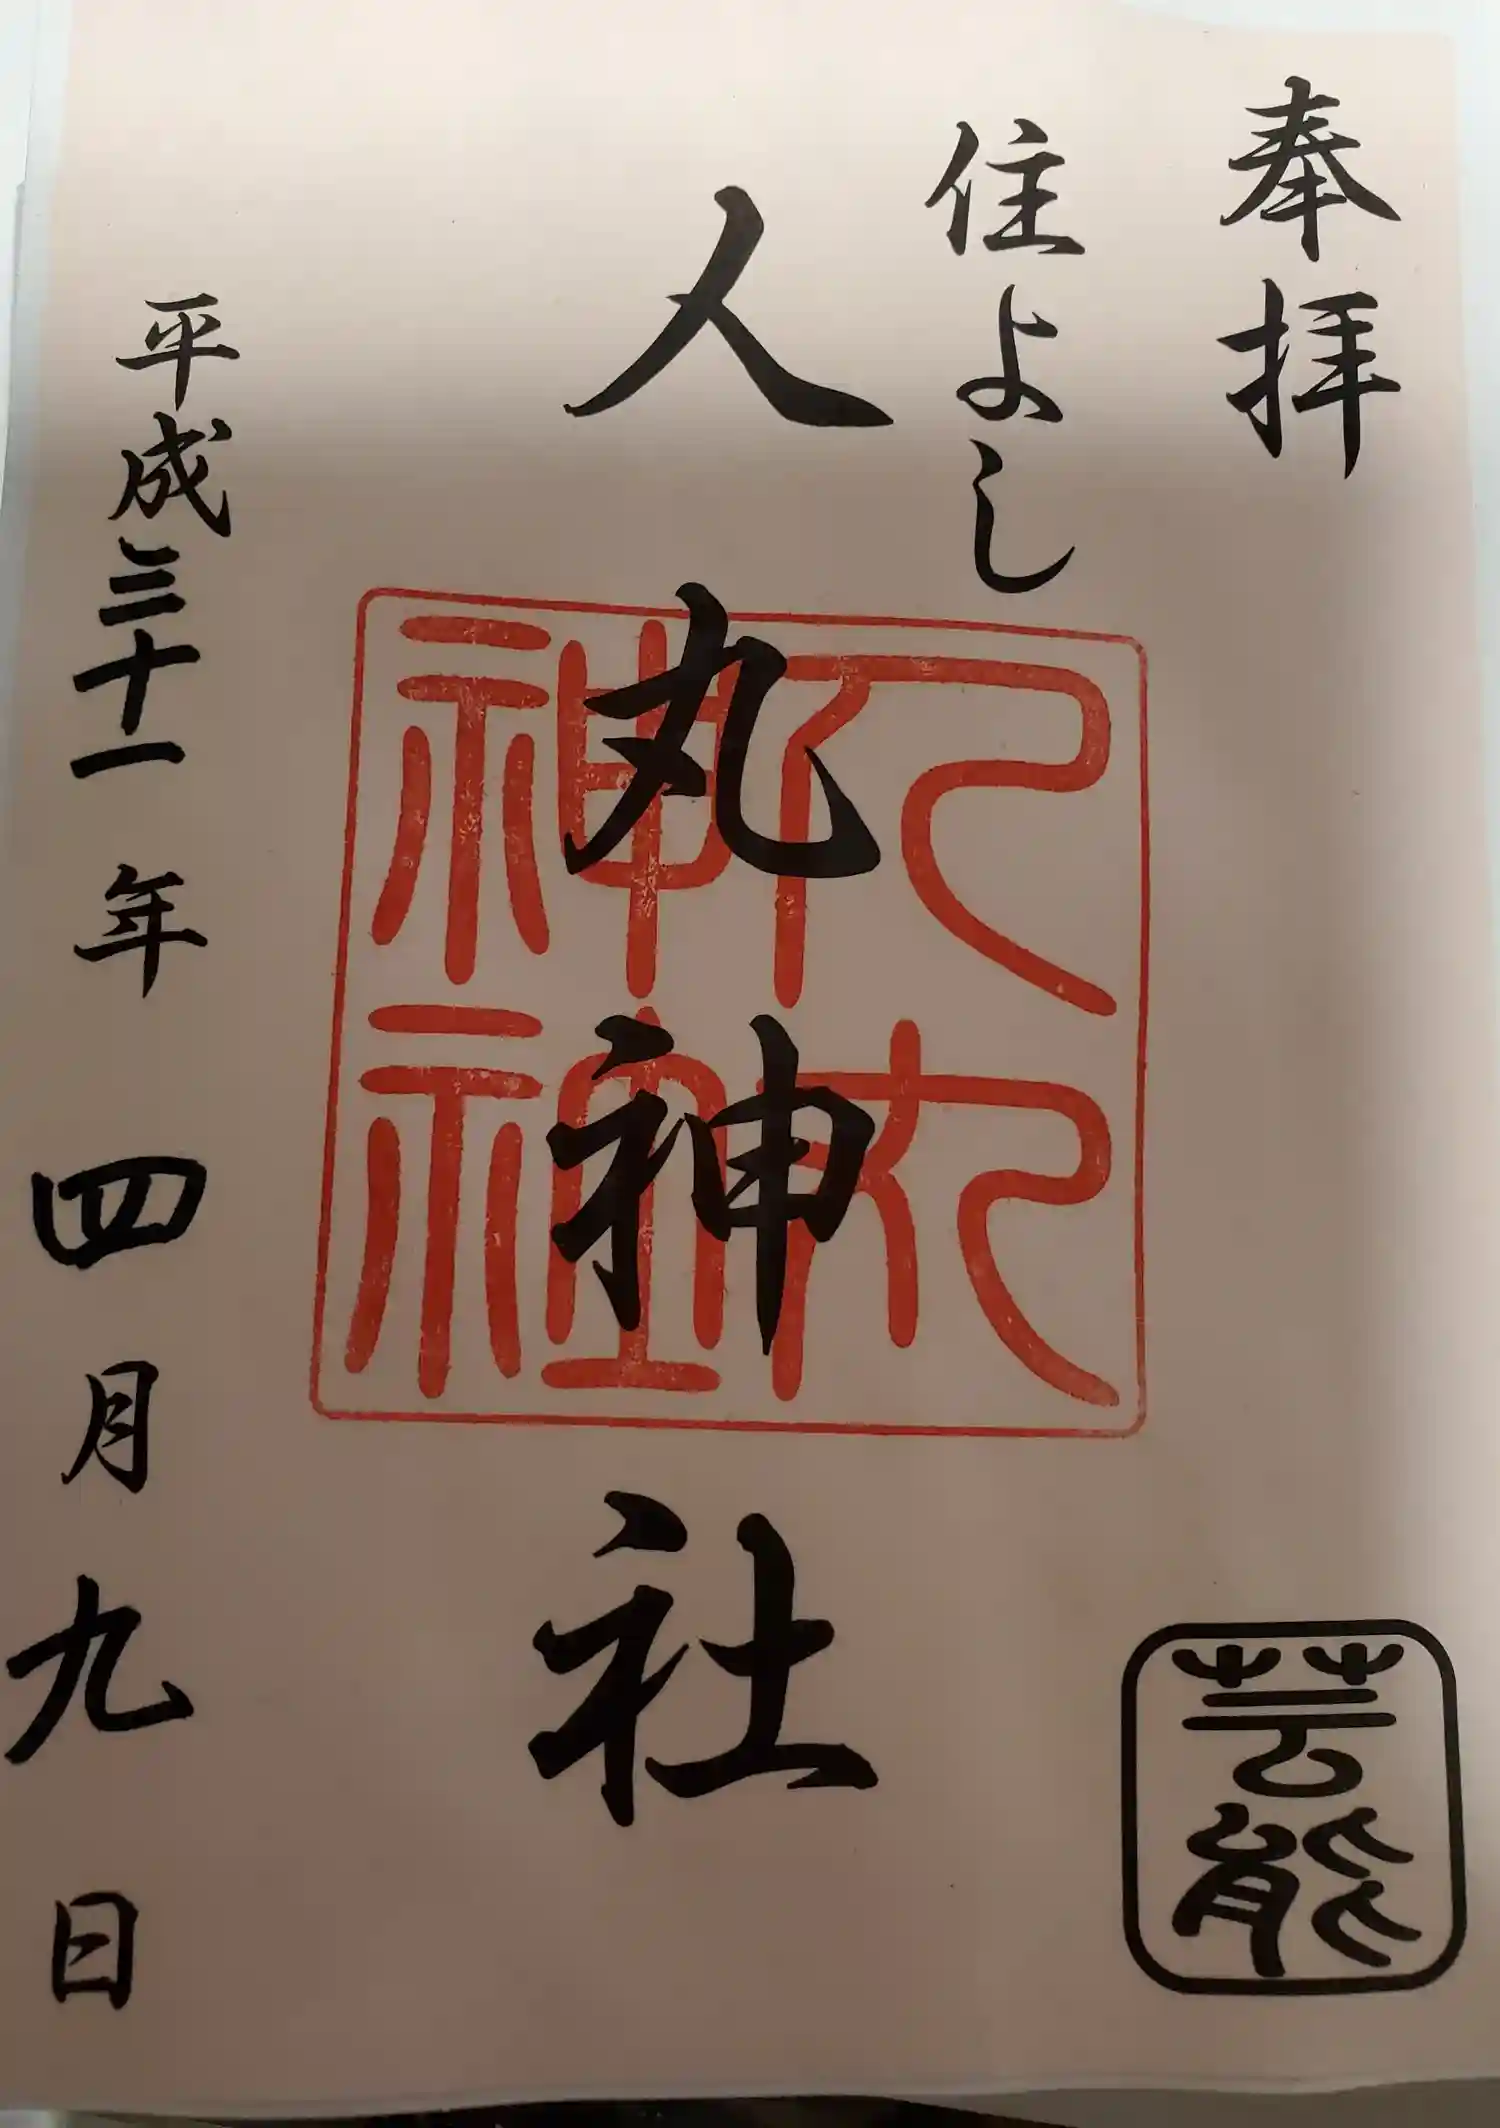 奉拝
住よし
人丸神社
人丸神社
平成三十一年四月九日
芸能